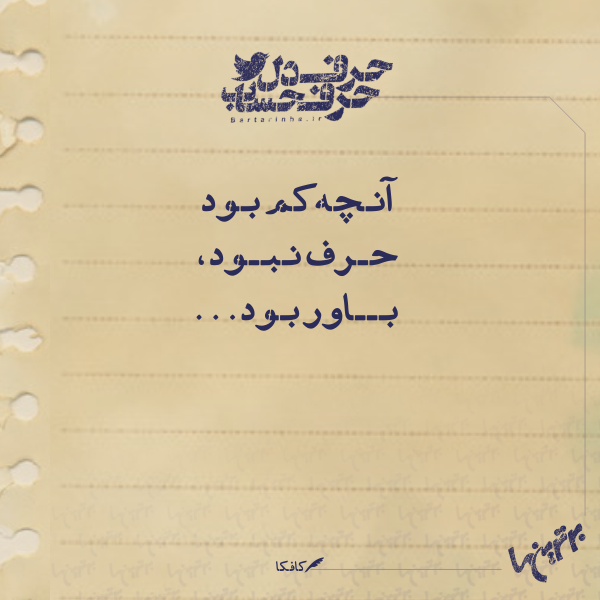 حرف دل
حرف حساب
Bartarinha.ir
آنچه کم بود
حرف نبود،
باور بود...
کافکا
برترین‌ها